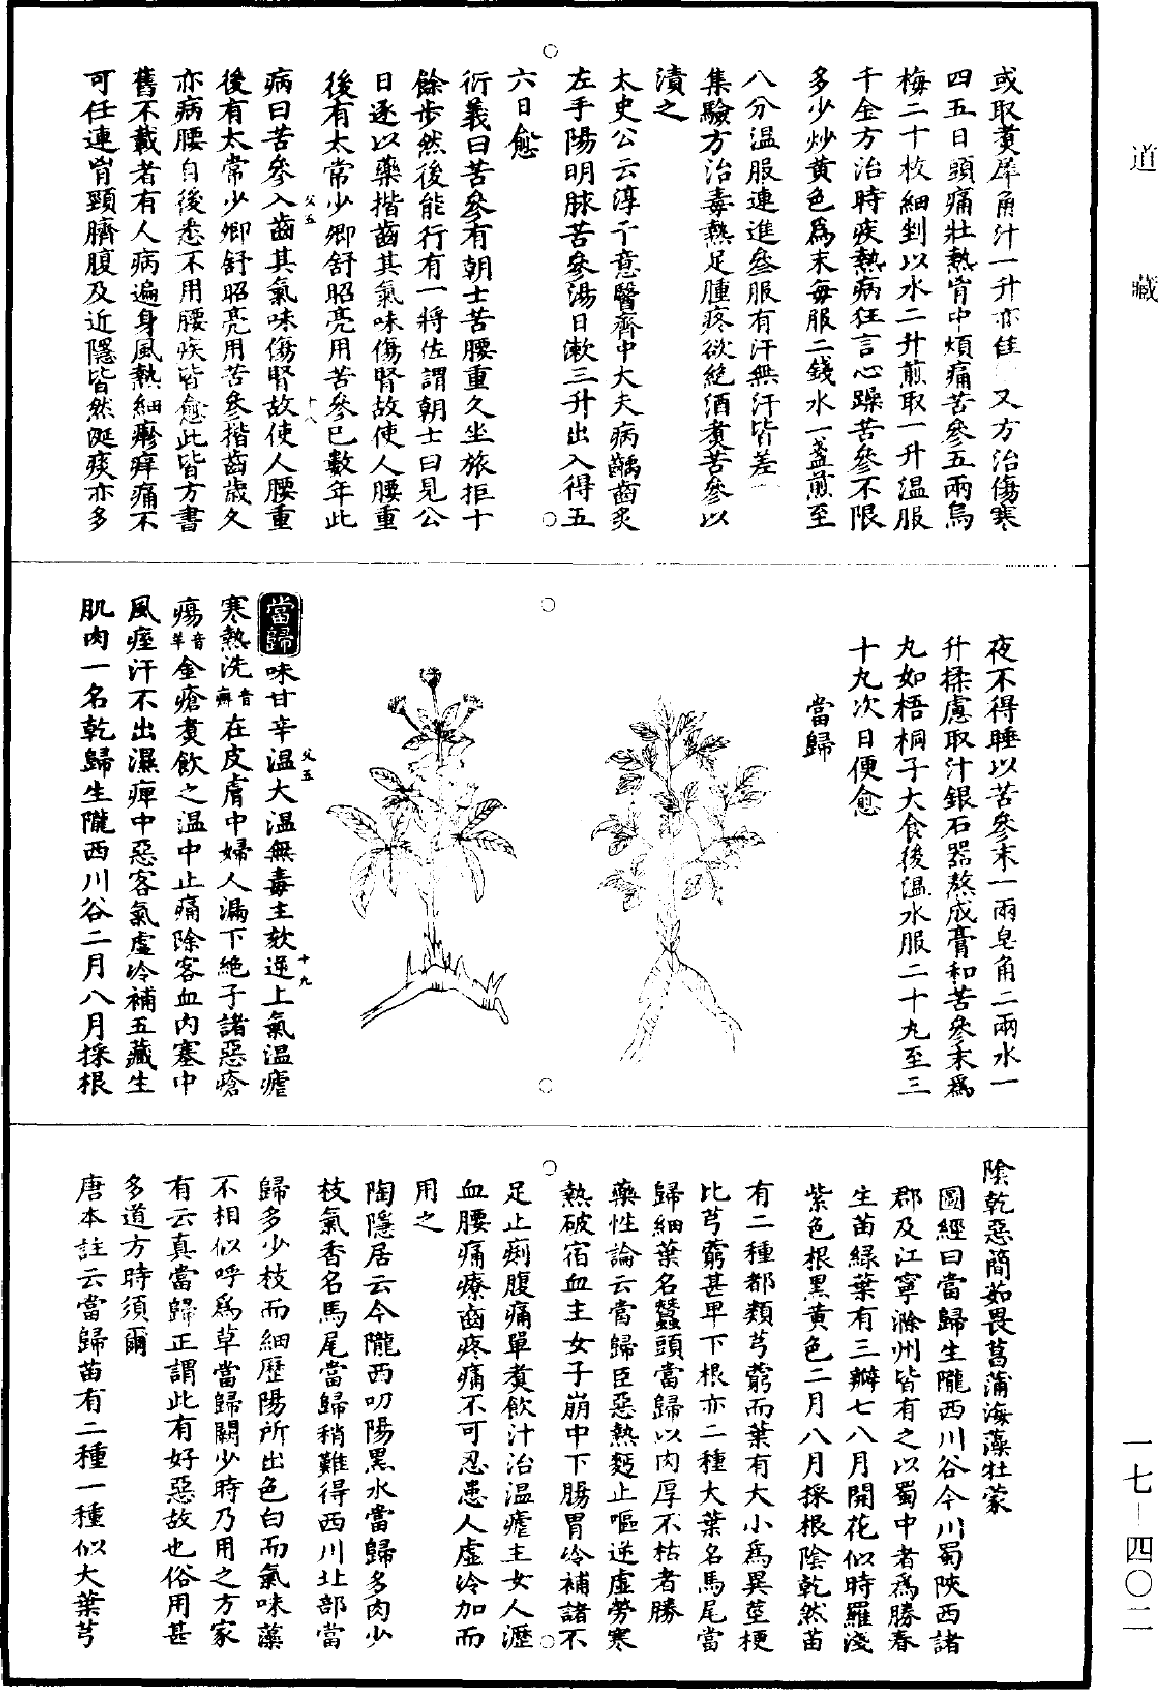 道藏
或取煑犀角汁一升亦佳 又方治傷寒
四五日頭痛壯熱胷中煩痛苦參五兩烏
梅二十枚細剉以水二升煎取一升温服
千金方治時疾熱病狂言心躁苦參不限
多少炒黄色爲末每服二錢水一盞煎至
八分温服連進叅服有汗無汗皆差
集驗方治毒熱足腫疼欲絶酒煑苦參以
漬之
太史公云淳于意醫齊中大夫病齲齒炙
左手陽明脉苦參湯日漱三升出入得五
六日愈
衍義曰苦參有朝士苦腰重久坐旅拒十
餘步然後能行有一將佐謂朝士曰見公
日逐以藥揩齒其氣味傷腎故使人腰重
後有太常少卿舒昭亮用苦參已數年此
病曰苦參入齒其氣味傷腎故使人腰重
後有太常少卿舒昭亮用苦參揩齒歲久
亦病腰自後悉不用腰疾皆愈此皆方書
舊不載者有人病遍身風熱細瘮痒痛不
可任連胷頸臍腹及近隱皆然涎痰亦多
父五
十八
夜不得睡以苦參末一兩皂角二兩水一
升揉慮取汁銀石器熬成膏和苦參末爲
丸如梧桐子大食後温水服二十丸至三
十丸次日便愈
當歸
當歸味甘辛温大温無毒主欬逆上氣温瘧
寒熱洗音癬在皮膚中婦人漏下絶子諸惡瘡
瘍音羊金瘡煑飲之温中止痛除客血内塞中
風痓汗不出濕痺中惡客氣虛冷補五藏生
肌肉一名乾歸生隴西川谷二月八月採根
父五
十九
陰乾惡䕡茹畏菖蒲海藻牡蒙
圖經曰當歸生隴西川谷今川蜀陜西諸
郡及江寧滁州皆有之以蜀中者爲勝春
生苗緑葉有三瓣七八月開花似時羅淺
紫色根黑黄色二月八月採根陰乾然苗
有二種都類芎藭而葉有大小爲異莖梗
比芎藭甚卑下根亦二種大葉名馬尾當
歸細葉名蠶頭當歸以肉厚不枯者勝
藥性論云當歸臣惡熱麪止嘔逆虛勞寒
熱破宿血主女子崩中下腸胃冷補諸不
足止痢腹痛單煑飲汁治温瘧主女人瀝
血腰痛療齒疼痛不可忍患人虛冷加而
用之
陶隱居云今隴西叨陽黑水當歸多肉少
枝氣香名馬尾當歸稍難得西川北部當
歸多少枝而細歷陽所出色白而氣味薄
不相似呼爲草當歸闕少時乃用之方家
有云真當歸正謂此有好惡故也俗用甚
多道方時須爾
唐本註云當歸苗有二種一種似大葉芎
一七—四〇二